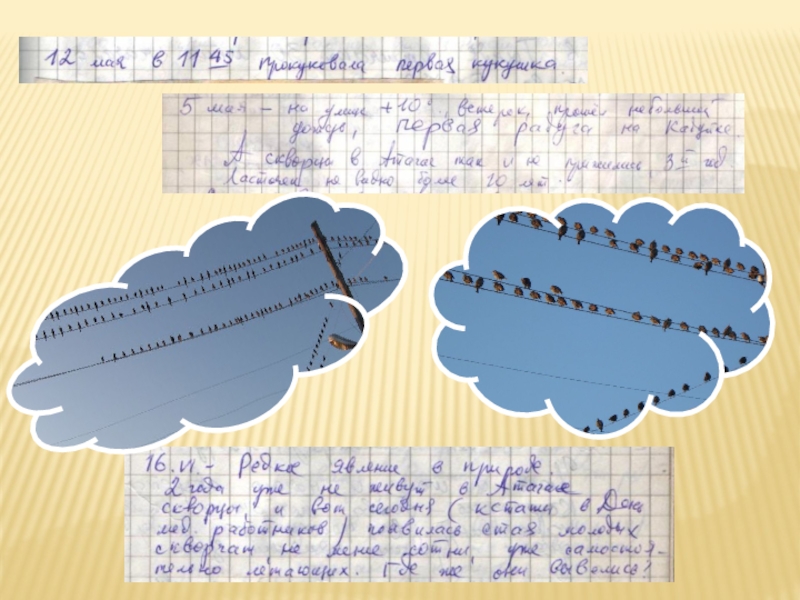 12 мая в 11 45 прокуковала первая кукушка.
5 мая – на улице +10°, ветерек, прошёл небольшой
дождь, первая радуга на Кадуке.
А скворцы в Атагае так и не прижились, 3й год
Ласточек не видно более 10 лет.
16.VI.- Редкое явление в природе.
2 года уже не живут в Атагае
скворцы и вот сегодня (кстати в День
мед. работников) появилась стая молодых
скворчат не менее сотни, уже самостоя-
тельно летающих. Где же они вывелись?